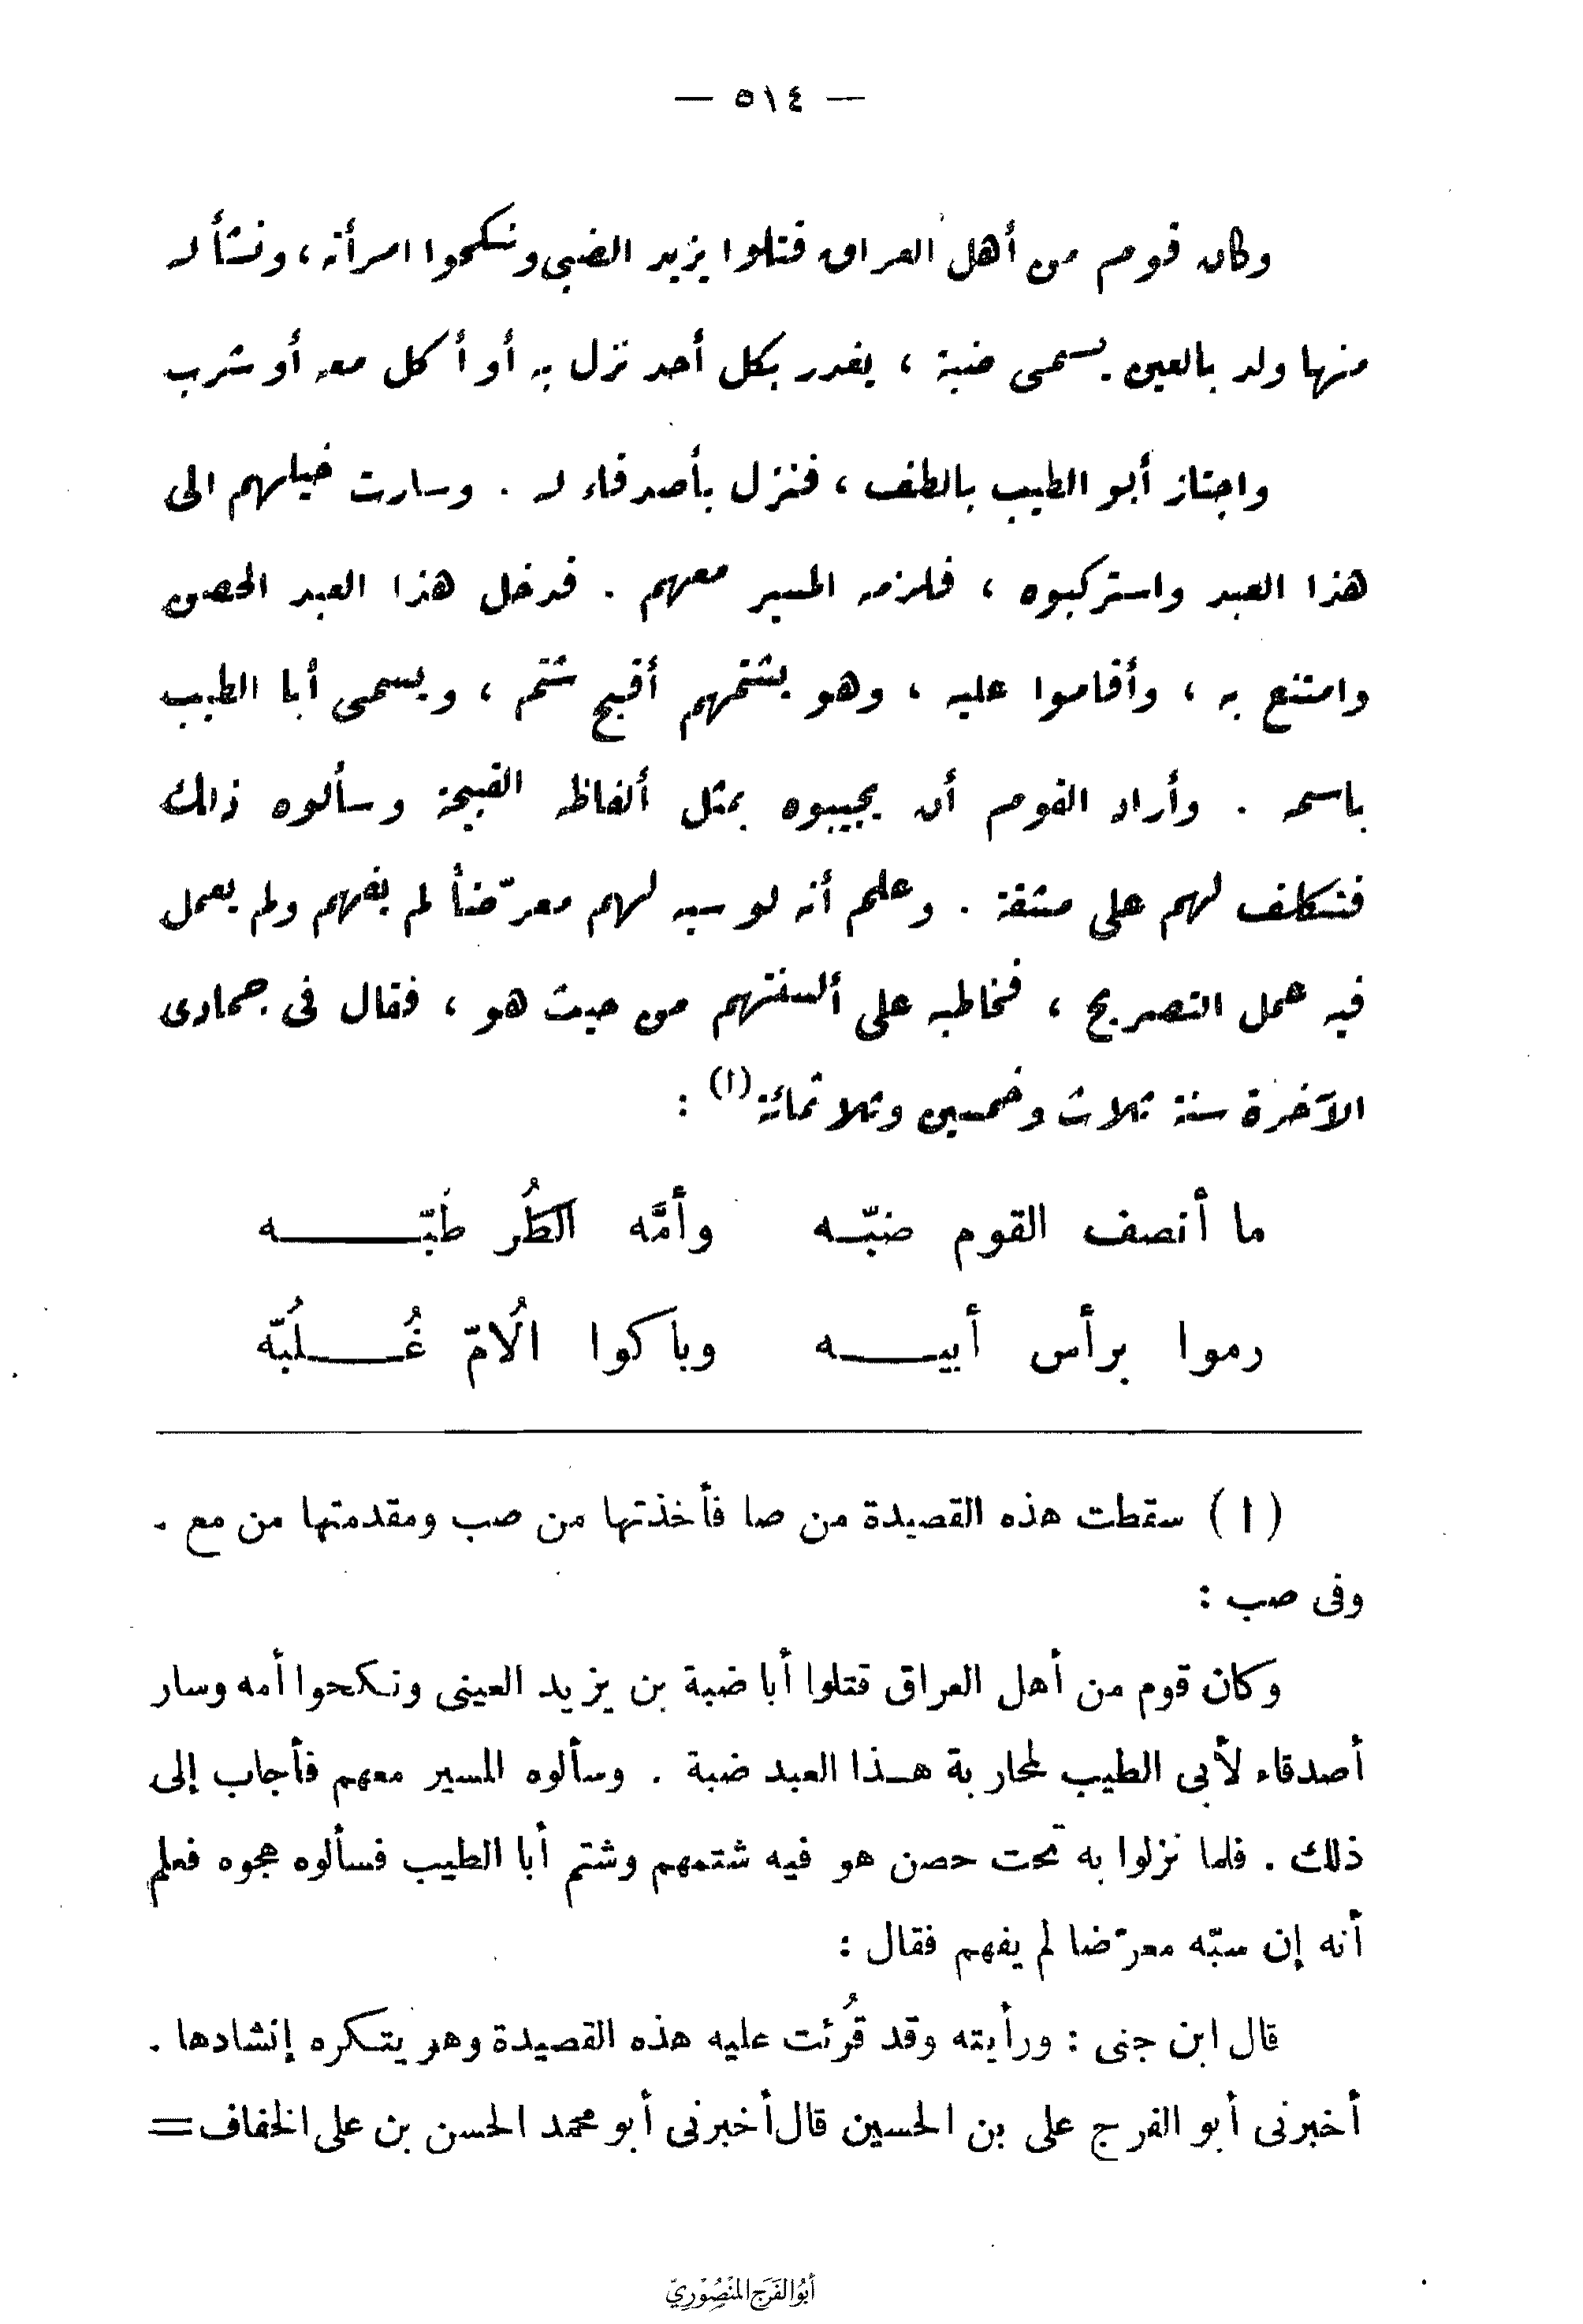 — ٥١٤ —
وكان قوم من أهل العراق قتلوا يزيد الضبى ونكحوا امرأته ، ونشأ له
منها ولد بالعين يسمى ضبة ، يغدر بكل أحد نزل به أو أكل معه أو شرب
واجتاز أبو الطيب بالطف ، فنزل بأصدقاء له . وسارت خيلهم الى
هذا العبد واستركبوه ، فلزمه المسير معهم . فدخل هذا العبد الحصن
وامتنع به ، وأقاموا عليه ، وهو يشتمهم أقبح شتم ، ويسمى أبا الطيب
باسمه . وأراد القوم أن يجيبوه بمثل ألفاظه القبيحة وسألوه ذلك
فتكلف لهم على مشقة . وعلم أنه لو سبه لهم معرّضاً لم يفهم ولم يعمل
فيه عمل التصريح ، فخاطبه على ألسنتهم من حيث هو ، فقال فى جمادى
الآخرة سنة ثلاث وخمسين وثلاثمائة (١) :
ما أنصف القوم ضبّـه وأمَّه الطُر طَبّـــه
رموا برأس أبيـــه وباكوا الُامّ غُـــلُبّه
(١) سقطت هذه القصيدة من صا فأخذتها من صب ومقدمتها من مع .
وفى صب :
وكان قوم من أهل العراق قتلوا أبا ضبة بن يزيد العينى ونكحوا أمه وسار
أصدقاء لأبى الطيب لمحاربة هـذا العبد ضبة . وسألوه المسير معهم فأجاب إلى
ذلك . فلما نزلوا به تحت حصن هو فيه شتمهم وشتم أبا الطيب فسألوه هجوه فعلم
أنه إن سبّه معرّضا لم يفهم فقال :
قال ابن جنى : ورأيته وقد قُرئت عليه هذه القصيدة وهو يتكره إنشادها .
أخبرنى أبو الفرج على بن الحسين قال أخبرنى أبو محمد الحسن بن على الخفاف =
أبُو الفَرَج المَنْصُوْرِيّ